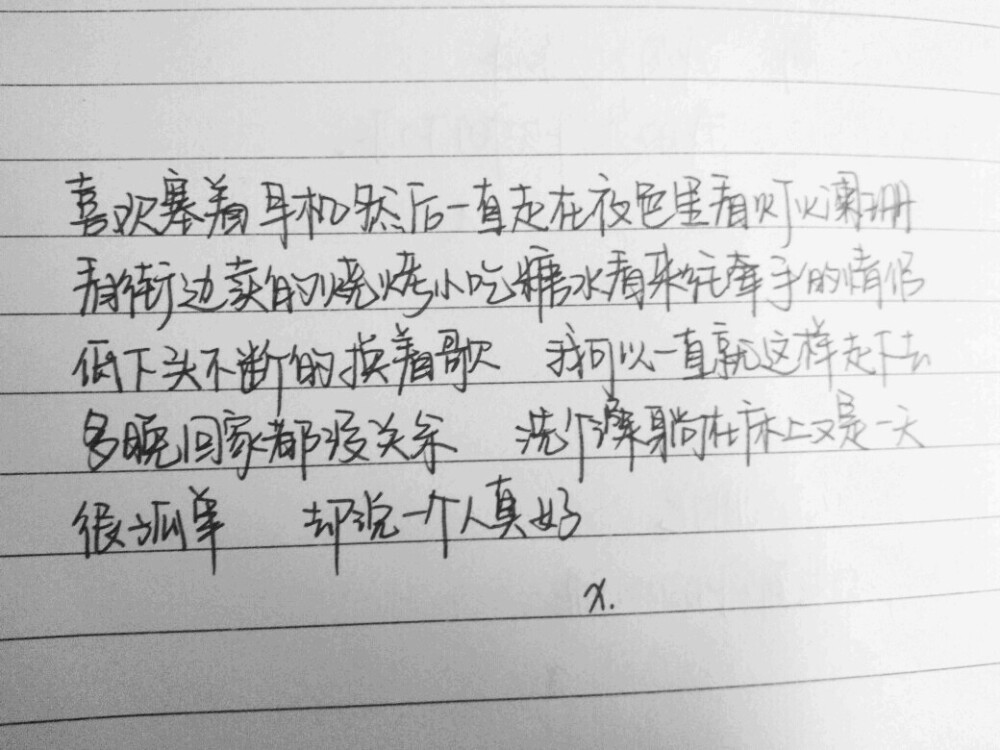 喜欢塞着耳机然后一直走在夜色里看灯火阑珊
看街边卖的烧烤小吃糖水看来往牵手的情侣
低下头不断的换着歌 我可以一直就这样走下去
多晚回家都没关系 洗个澡躺在床上又是一天
很孤单 却说一个人真好
x.